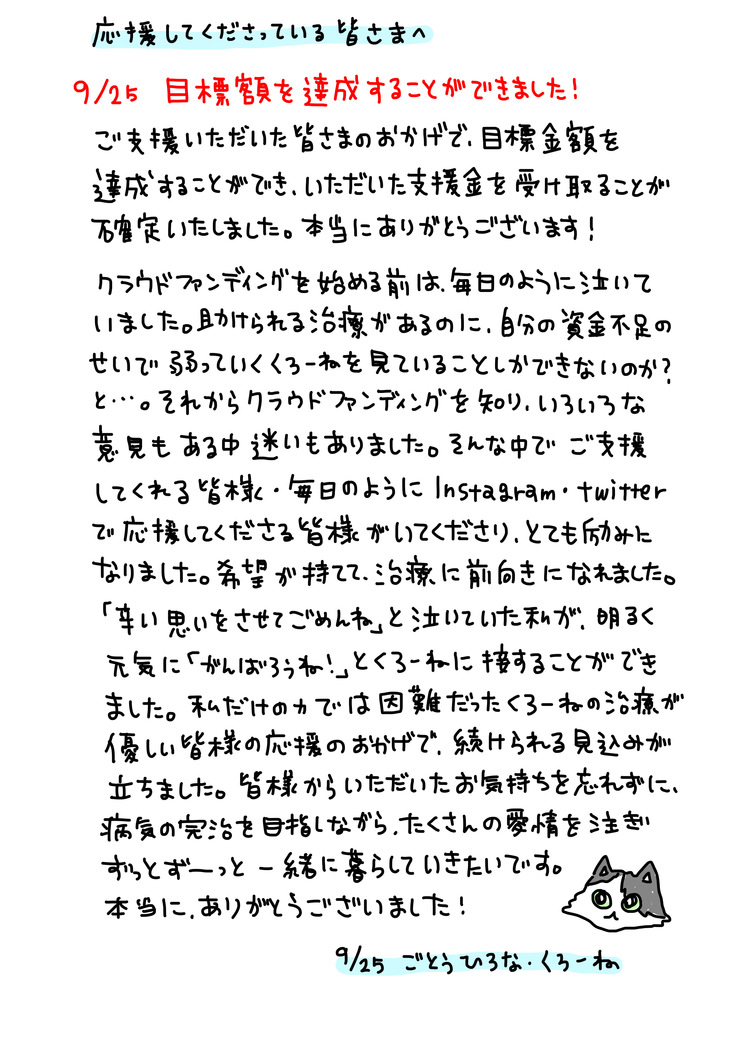 応援してくださっている皆さまへ
9/25 目標額を達成することができました!
ご支援いただいた皆さまのおかげで、目標金額を
達成することができ、いただいた支援金を受け取ることが
確定いたしました。本当にありがとうございます!
クラウドファンディングを始める前は、毎日のように泣いて
いました。助けられる治療があるのに、自分の資金不足の
せいで弱っていくくろーねを見ていることしかできないのか?
と…。それからクラウドファンディングを知り、いろいろな
意見もある中迷いもありました。そんな中でご支援
してくれる皆様・毎日のようにInstagram・twitter
で応援してくださる皆様がいてくださり、とても励みに
なりました。希望が持てて、治療に前向きになれました。
「辛い思いをさせてごめんね」と泣いていた私が、明るく
元気に「がんばろうね!」とくろーねに接することができ
ました。私だけの力では困難だったくろーねの治療が
優しい皆様の応援のおかげで、続けられる見込みが
立ちました。皆様からいただいたお気持ちを忘れずに、
病気の完治を目指しながら、たくさんの愛情を注ぎ
ずっとずーっと一緒に暮らしていきたいです。
本当に、ありがとうございました!
9/25 ごとうひろな・くろーね